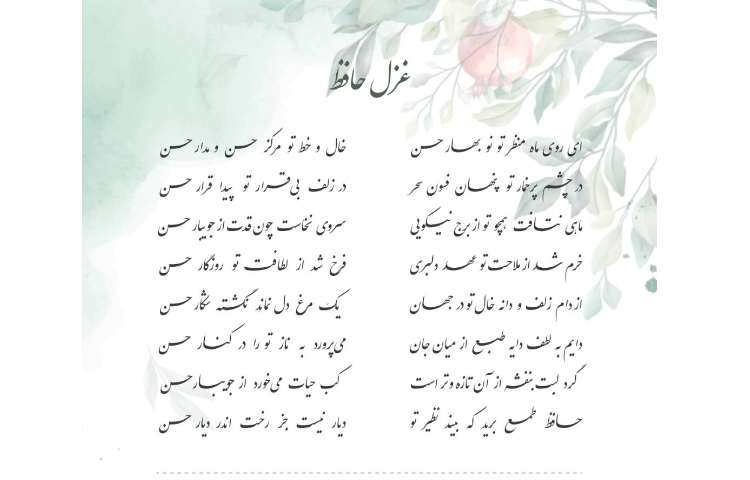 غزل حافظ
ای روی ماه منظر تو نو بهار حسن خال و خط تو مرکز حسن و مدار حسن
در چشم پرخمار تو پنهان فسون سحر در زلف بی‌قرار تو پیدا قرار حسن
ماهی نتافت همچو تو از برج نیکویی سروی نخاست چون قدت از جویبار حسن
خرم شد از ملاحت تو عهد دلبری فرخ شد از لطافت تو روزگار حسن
از دام زلف و دانه خال تو در جهان یک مرغ دل نماند نگشته شکار حسن
دایم به لطف دایه طبع از میان جان می‌پرورد به ناز تو را در کنار حسن
گرد لبت بنفشه از آن تازه و تر است کب حیات می‌خورد از جویبار حسن
حافظ طمع برید که بیند نظیر تو دیار نیست جز رخت اندر دیار حسن